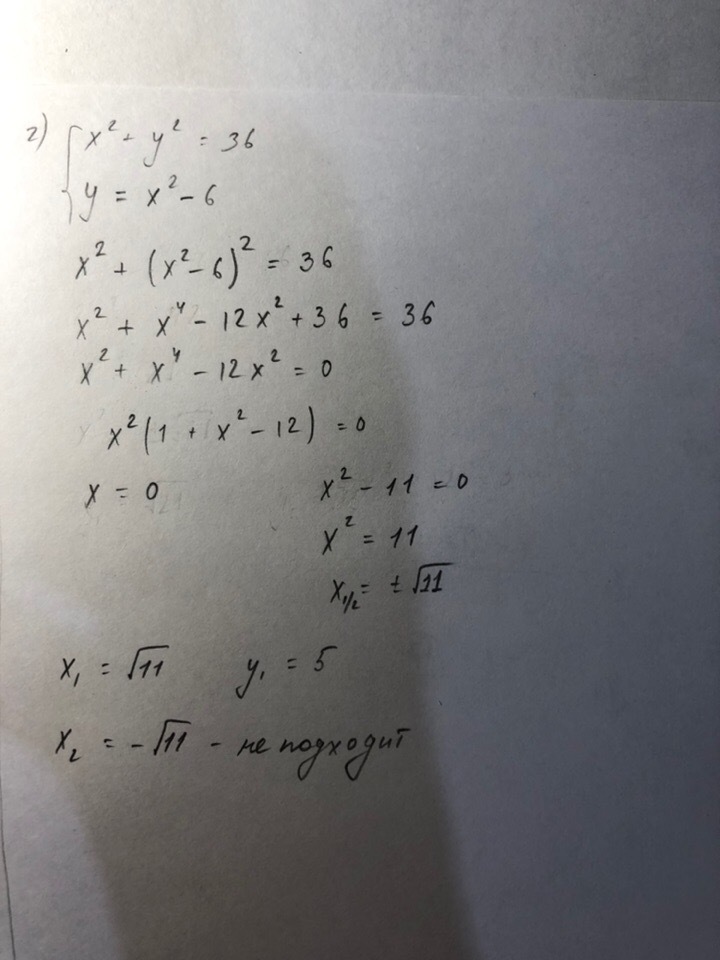 г) { x² + y² = 36
y = x² - 6
x² + (x² - 6)² = 36
x² + x⁴ - 12x² + 36 = 36
x² + x⁴ - 12x² = 0
x²(1 + x² - 12) = 0
x = 0 x² - 11 = 0
x² = 11
x₁/₂ = ±√11
x₁ = √11 y₁ = 5
x₂ = -√11 - не подходит